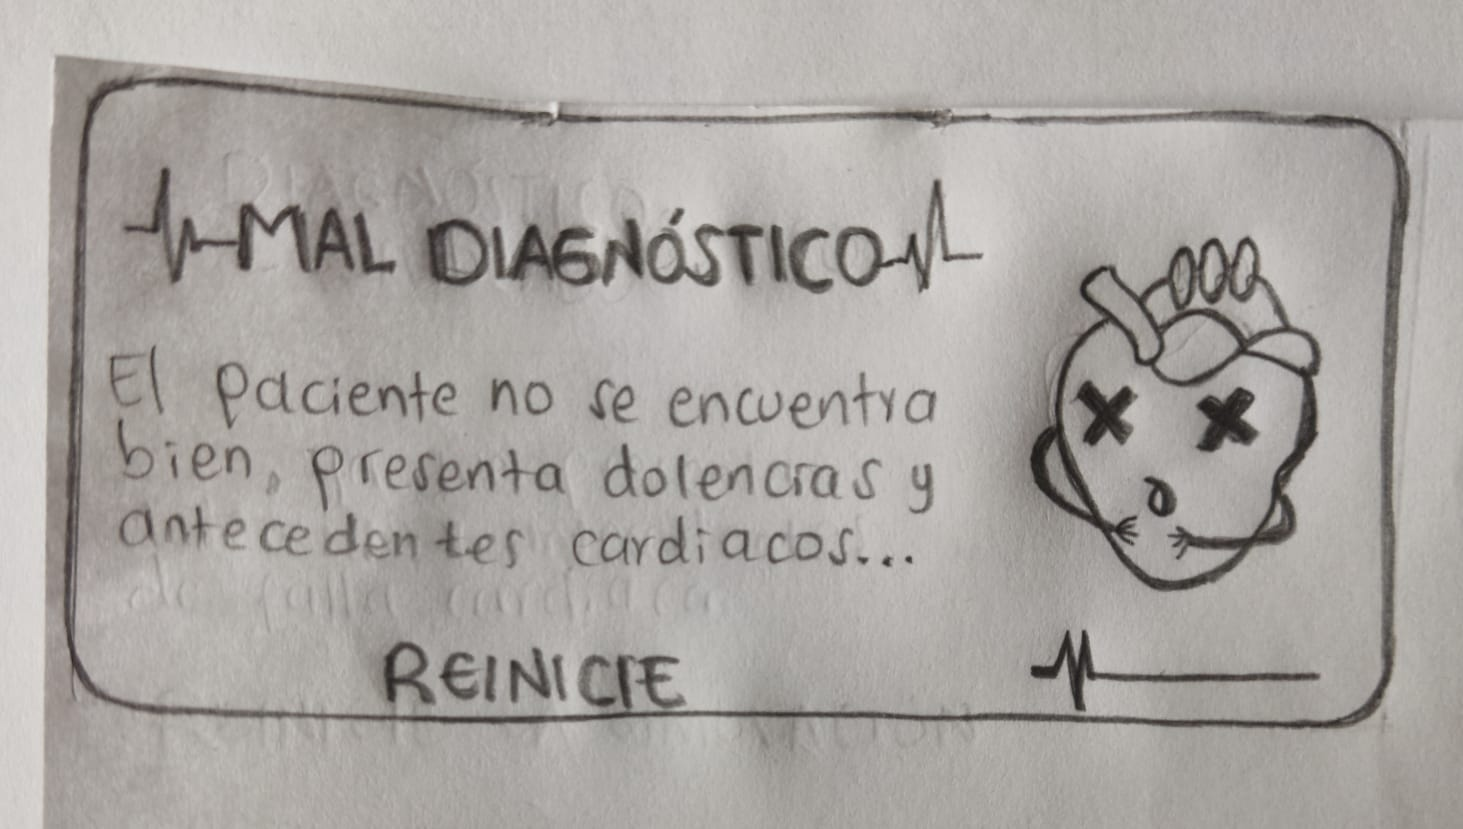 MAL DIAGNÓSTICO
El paciente no se encuentra
bien, presenta dolencias y
antecedentes cardiacos...
de falla cardiaca
REINICIE